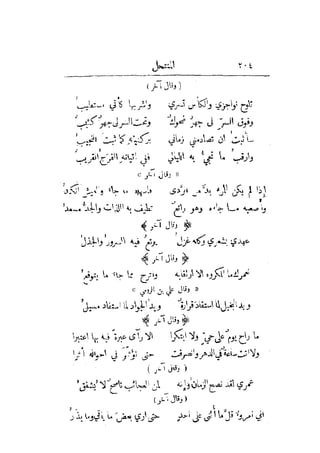 ٢٠٤ المنتحل
( وقال آخر )
تلوح نواجذي والكأس تسري وأشربها كأني مستطيب
وفوق السر لي جهر ضحوك وتحت السر لي جهر كئيب
سأثبت ان تصادمني زماني بركنيه كما ثبت النجيب
وارقب ما تجيء به الليالي ففي اثنائه الفرج القريب
« وقال آخر »
إذا لم يكن للمرء بد من الردى
وهو رائح تطيف به اللذات والجد مسعد
﴿ وقال آخر ﴾
عهدي بشعري وكله غزل يرتع فيه السرور والجذل
﴿ وقال آخر ﴾
المكروه الا ارتقابه وابرح مما حل ما يتوقع
« وقال علي بن الرومي »
ويد البخيل لما استفاد قرارة ويد الجواد لما استفاد مسيل
﴿ وقال آخر ﴾
ما راح يوم على حي ولا ابتكرا الا رأى عبرة فيه بها اعتبرا
ولا اتت ساعة في الدهر وانصرفت حتى تؤثر في احواله أثرا
( وقال آخر )
عمري لقد نصح الزمان وإنه لمن العجائب ناصح لا يشفق
( وقال آخر )
اني امرؤ قل ما أثني على احد حتى ارى بعض ما يأتي وما يذر